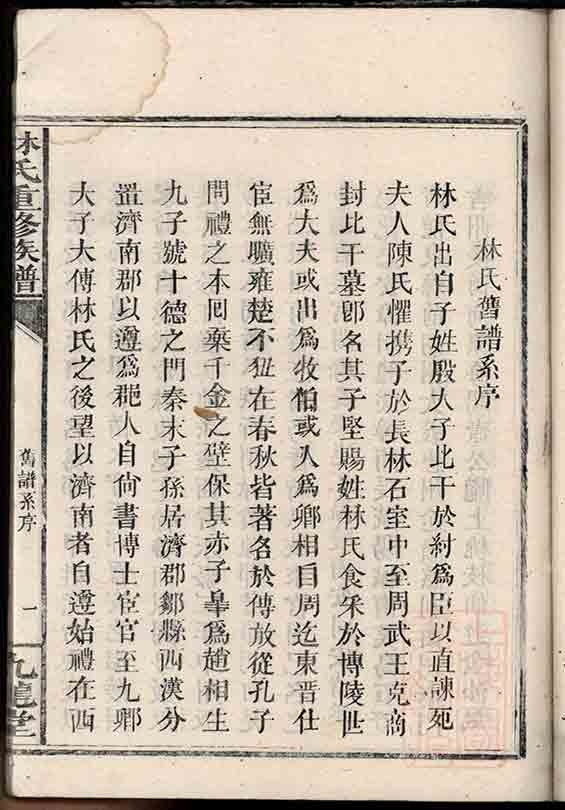 林氏舊譜系序
林氏出自子姓殷大子比干於紂爲臣以直諫死
夫人陳氏懼攜子於長林石室中至周武王克商
封比干墓卽名其子堅賜姓林氏食采於博陵世
爲大夫或出爲牧伯或入爲鄉相自周迄東晋仕
宦無曠雍楚不狃在春秋皆著名於傳放從孔子
問禮之本回棄千金之璧保其赤子皐爲趙相生
九子號十德之門秦末子孫居濟郡鄒縣西漢分
置濟南郡以遵爲郡人自尙書博士宦官至九鄉
大子大傅林氏之後望以濟南者自遵始禮在西
林氏重修族譜
舊譜系序
一
九龍堂